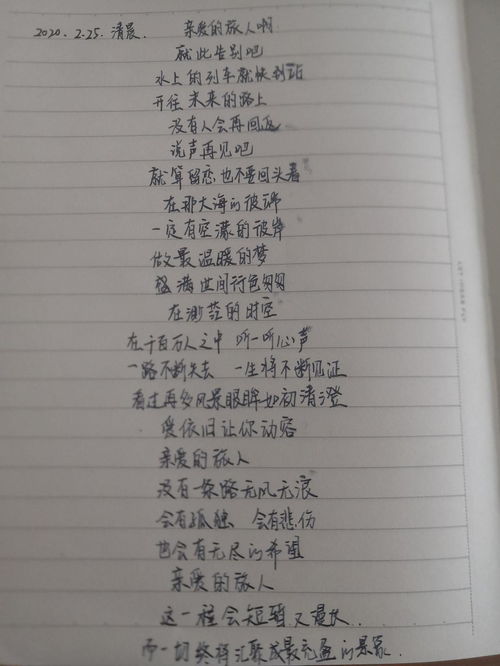 2020. 2.25. 清晨. 亲爱的旅人啊
就此告别吧
水上的列车就快到站
开往未来的路上
没有人会再回返
说声再见吧
就算留恋也不要回头看
在那大海的彼端
一定有空濛的彼岸
做最温暖的梦
盛满世间行色匆匆
在渺茫的时空
在千百万人之中 听一听心声
一路不断失去 一生将不断见证
看过再多风景眼眸如初清澄
爱依旧让你动容
亲爱的旅人
没有一条路无风无浪
会有孤独 会有悲伤
也会有无尽的希望
亲爱的旅人
这一程会短暂又漫长
而一切终将汇聚成最充盈的景象.